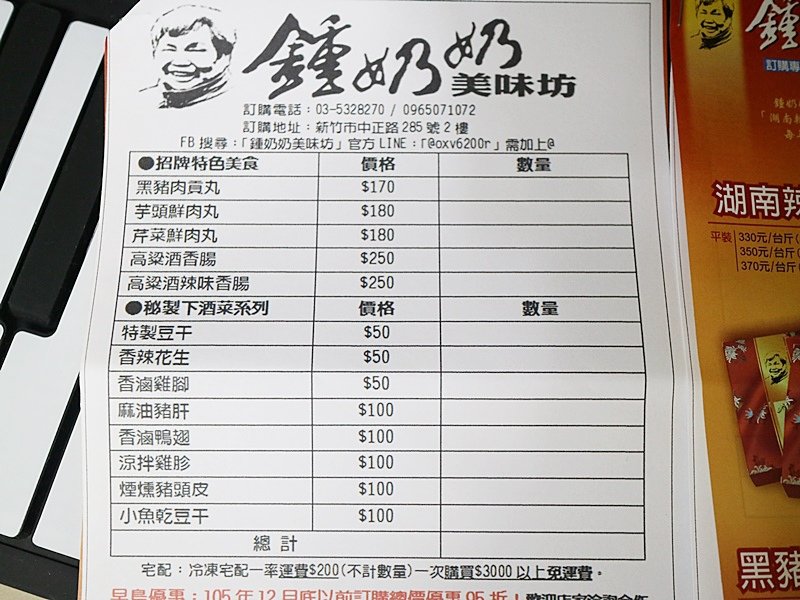 鍾奶奶
美味坊
訂購電話：03-5328270 / 0965071072
訂購地址：新竹市中正路285號2樓
FB 搜尋：「鍾奶奶美味坊」官方 LINE：「@oxv6200r」需加上@
●招牌特色美食 價格 數量
黑豬肉貢丸 $170
芋頭鮮肉丸 $180
芹菜鮮肉丸 $180
高粱酒香腸 $250
高粱酒辣味香腸 $250
●秘製下酒菜系列 價格 數量
特製豆干 $50
香辣花生 $50
香滷雞腳 $50
麻油豬肝 $100
香滷鴨翅 $100
涼拌雞胗 $100
煙燻豬頭皮 $100
小魚乾豆干 $100
總計
宅配：冷凍宅配一率運費$200(不計數量)一次購買$3000以上免運費。
早鳥優惠：105年12月底以前訂購總價優惠95折！歡迎店家洽詢合作
鍾
訂購專
鍾奶
「湖南
每
湖南辣
平裝 330元/台斤
350元/台斤
370元/台斤
黑豬